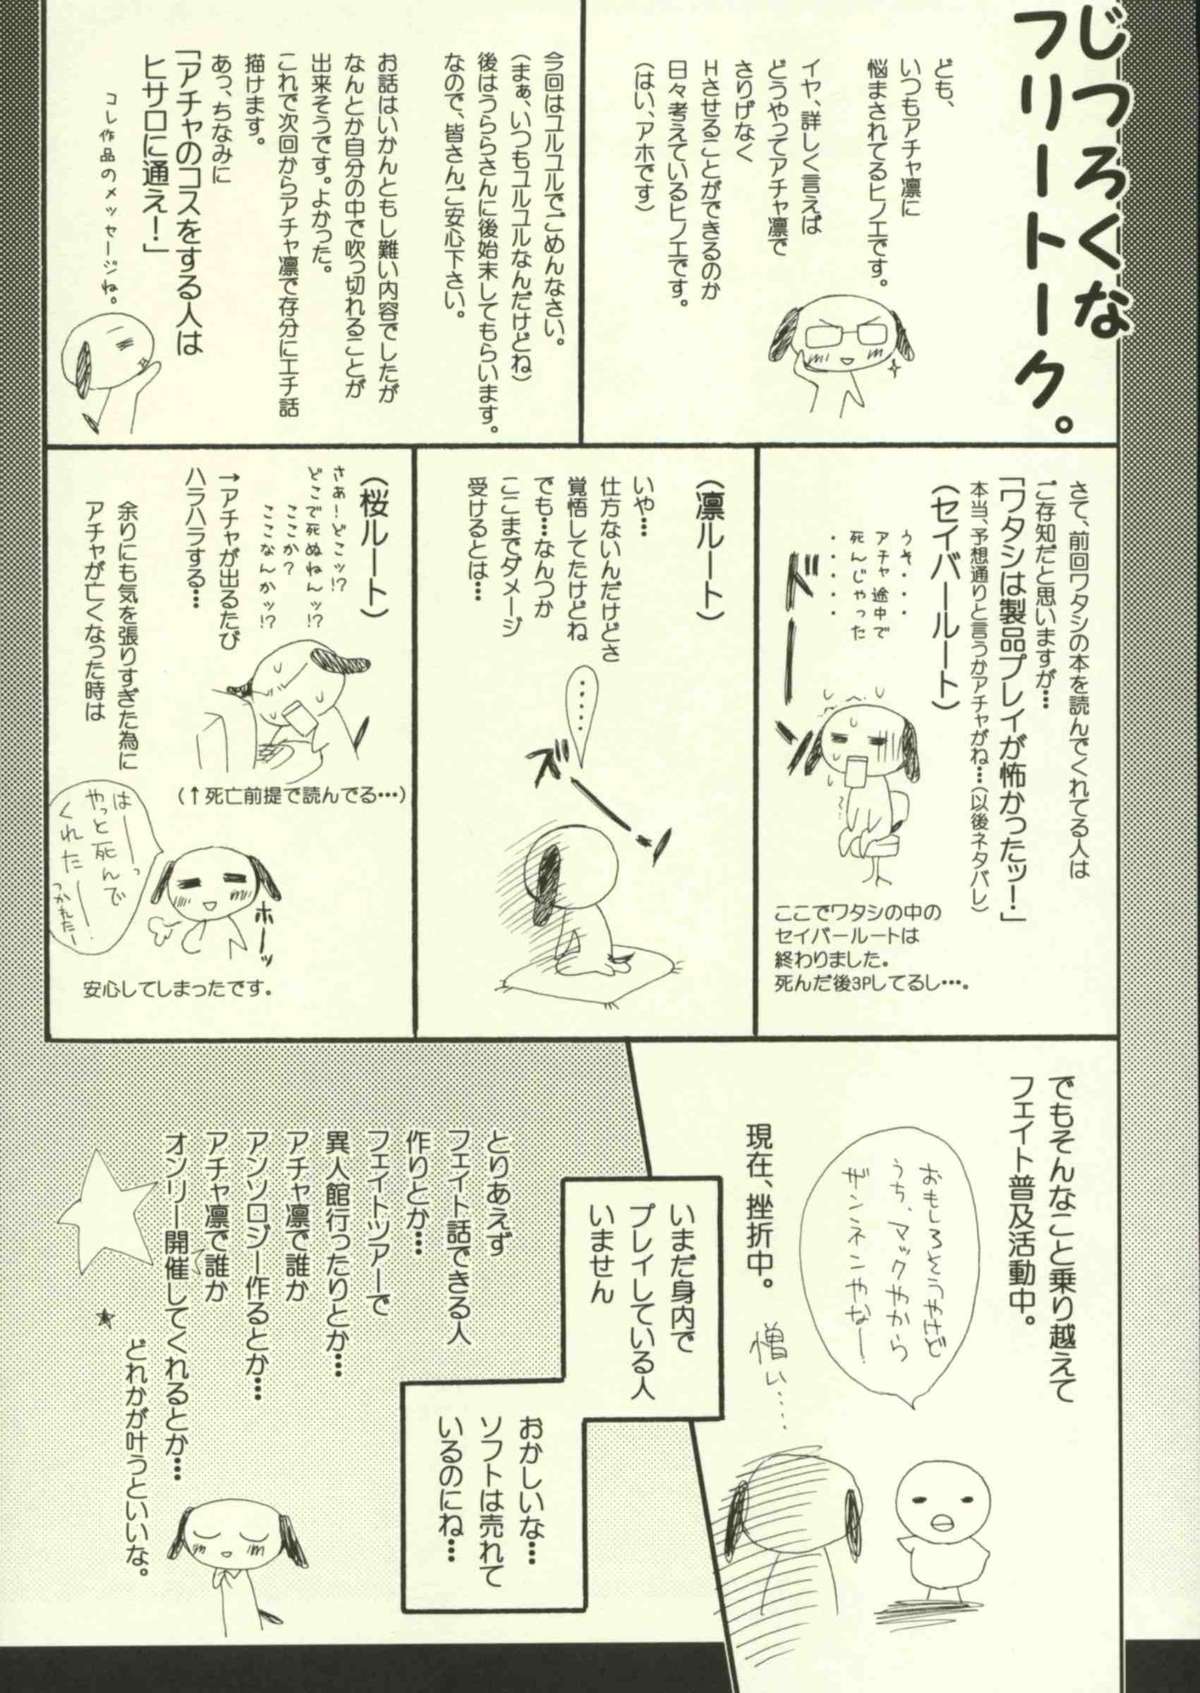 じつろくな
フリートーク。
ども、
いつもアチャ凛に
悩まされてるヒノエです。
イヤ、詳しく言えば
どうやってアチャ凛で
さりげなく
Hさせることができるのか
日々考えているヒノエです。
(はい、アホです)
今回はユルユルでごめんなさい。
(まぁ、いつもユルユルなんだけどね)
後はうららさんに後始末してもらいます。
なので、皆さんご安心下さい。
お話はいかんともし難い内容でしたが
なんとか自分の中で吹っ切れることが
出来そうです。よかった。
これで次回からアチャ凛で存分にエチ話
描けます。
あっ、ちなみに
「アチャのコスをする人は
ヒサロに通え！」
コレ作品のメッセージね。
さて、前回ワタシの本を読んでくれてる人は
ご存知だと思いますが…
「ワタシは製品プレイが怖かったッ！」
本当、予想通りと言うかアチャがね…(以後ネタバレ)
(セイバールート)
うそ・・・
アチャ途中で
死んじゃった
・・・・・
ドーーン
ここでワタシの中の
セイバールートは
終わりました。
死んだ後3Pしてるし…。
(凛ルート)
いや…
仕方ないんだけどさ
覚悟してたけどね
でも…なんつか
ここまでダメージ
受けるとは…
・・・・・
ズーーン
(桜ルート)
さぁ！どこッ!?
どこで死ぬねんッ!?
ここか？
ここなんかッ!?
→アチャが出るたび
ハラハラする…
(↑死亡前提で読んでる…)
余りにも気を張りすぎた為に
アチャが亡くなった時は
はーーっ
やっと死んで
くれたーー
つかれたー
ホーッ
安心してしまったです。
でもそんなこと乗り越えて
フェイト普及活動中。
おもしろそうやけど
うち、マックやから
ザンネンやなー！
現在、挫折中。
憎い・・・・・
いまだ身内で
プレイしている人
いません
おかしいな…
ソフトは売れて
いるのにね…
とりあえず
フェイト話できる人
作りとか…
フェイトツアーで
異人館行ったりとか…
アチャ凛で誰か
アンソロジー作るとか…
アチャ凛で誰か
オンリー開催してくれるとか…
どれかが叶うといいな。